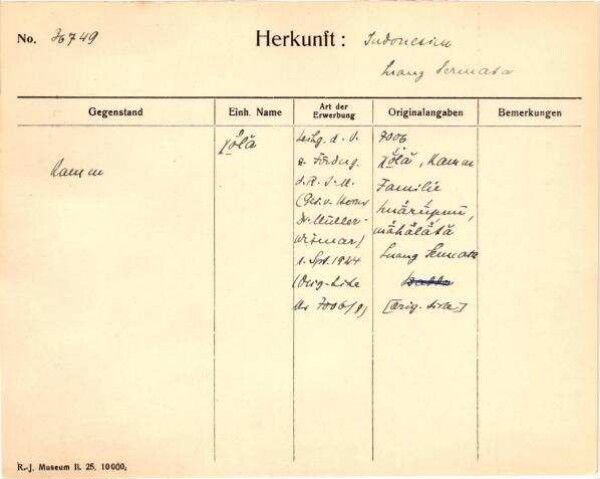 No. 36749 Herkunft: Indonesien
Luang Sermata
Gegenstand Einh. Name Art der Erwerbung Originalangaben Bemerkungen
Kamm
χölä
Leihg. d. V.
z. Förderg.
d. R.-J.-M.
(Ges. v. Herrn
Dr. Müller-
Wismar)
1. Spt. 1944
(Orig.-Liste
Nr 7006/8)
7006
χölä, Kamm
Familie
Luang Sermata
[Orig.-Liste]
R.-J. Museum II. 25. 10000.